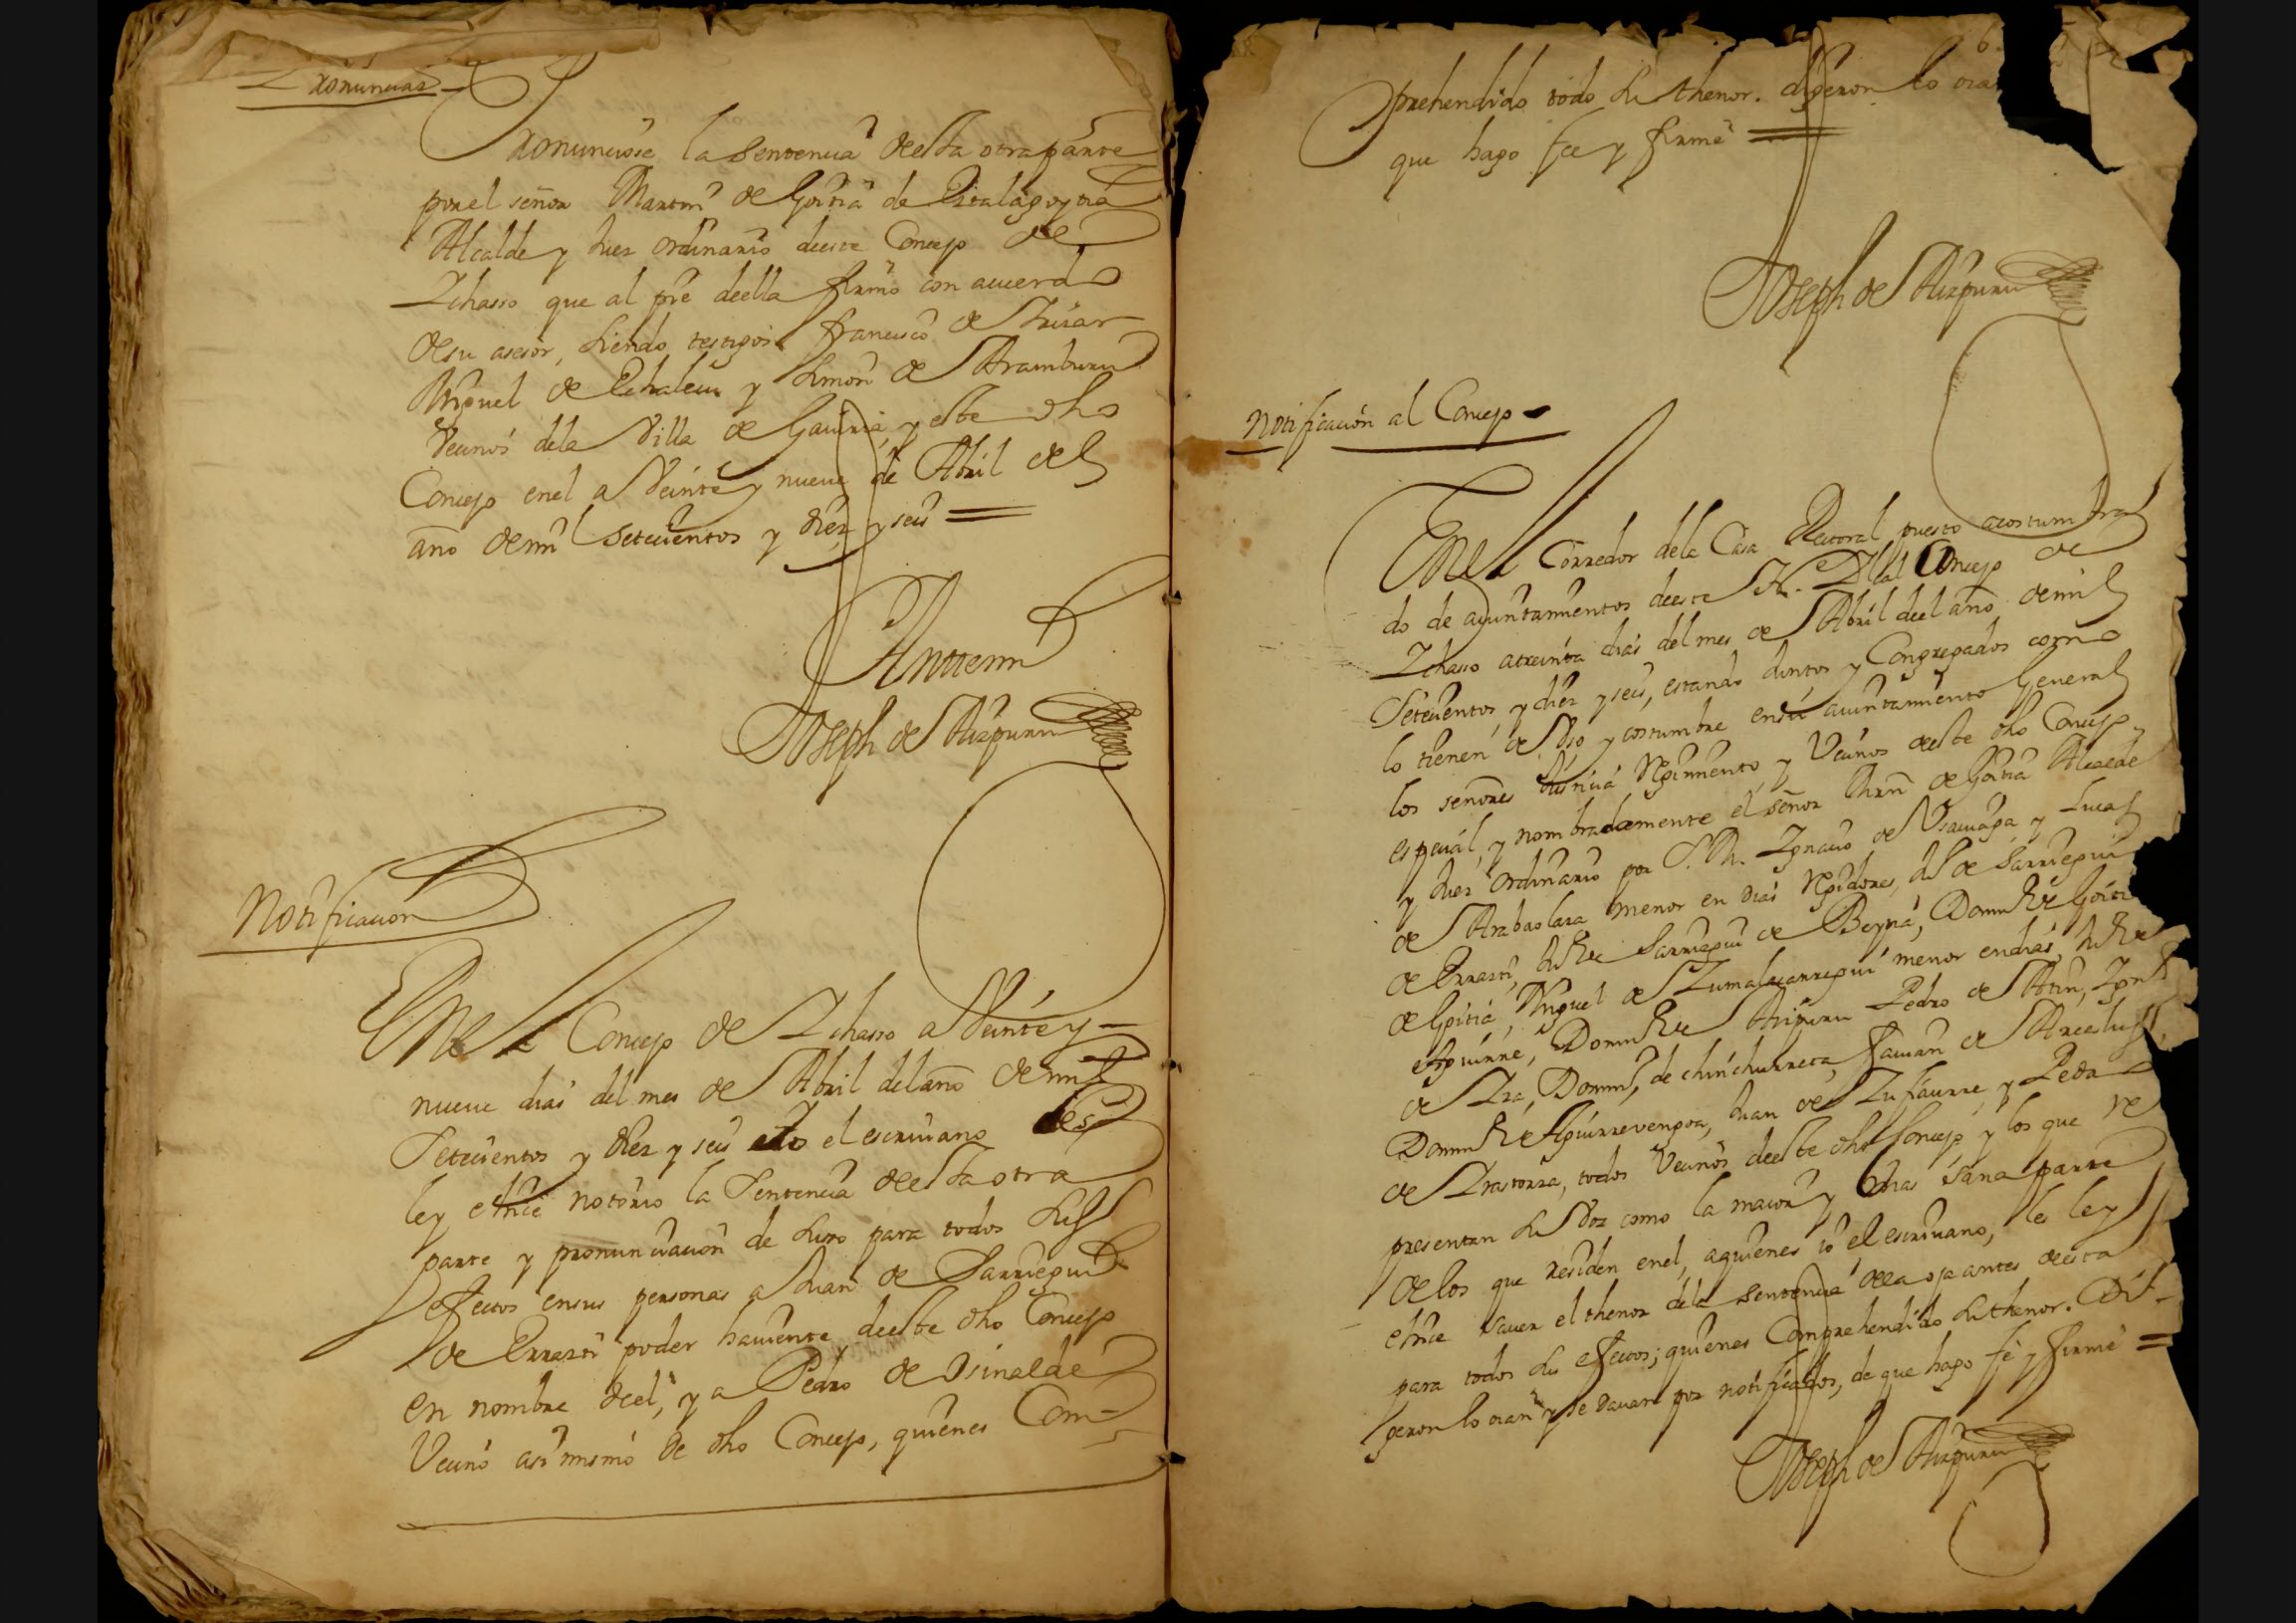 Pronuncias
Pronunciose la Sentencia deesta otra parte
por el señor Martin de Goitia de Eizalagoytia
Alcalde y Juez ordinario deeste Concejo de
Ichasso que al pie deella firmo con acuerdo
de su asesor, siendo testigos francisco de
Miguel de Echalecu y Simon de Aramburu
Vecinos dela Villa de Gaviria, y este dho
Concejo enel a Veinte y nueve de Abril del
año de mil Setecientos y diez y seis
Anttemi
Joseph de Aizpuru
Notificacion
Enel Concejo de Ichasso a Veinte y
nueve dias del mes de Abril del año de mil
Setecientos y diez y seis yo el escriuano
ley e hice notorio la Sentencia deesta otra
parte y pronunciacion de suso para todos sus
efectos en sus personas a Juan de Sarriegui
de Errazti poder haviente deeste dho Concejo
en nombre deel, y a Pedro de Osinalde
Vecino asi mismo de dho Concejo, quienes Com-
prehendido todo su thenor. dijeron lo oian
que hago fee y firme
Joseph de Aizpuru
Notificacion al Concejo
Enel Corredor dela Casa Rectoral puesto acostumbra
do de ayuntamientos deeste N. L. Concejo de
Ichasso atreinta dias del mes de Abril deel año de mil
Setecientos, y diez y seis, estando Juntos y Congregados como
lo tienen de Vso y costumbre en su aiuntamiento General
los señores Justicia Rgimiento, y Vecinos deeste dho Concejo
especial, y nombradamente el señor Mrn de Goitia Alcalde
y Juez ordinario por S. M. Ignacio de Vsauiaga y Lucas
de Arabaolaza menor en dias Rgidores, Ju de Sarriegui
de Errazti, Ju de Sarriegui de Beyna, Domin de Goiti
de Goitia, Miguel de Zumalacarregui menor en dias, Ju de
Aguirre, Domin de Aizpuru Pedro de Atin, Ign
de Iza, Domin, de chinchurreta, de Arcelus,
Domin de Aguirrevengoa, Juan de Zufiaurre, y Pedro
de Irastorza, todos Vecinos deeste dho Concejo y los que re
presentan su Voz como la maior y mas sana parte
de los que residen enel, aquienes io el escriuano, les ley
e hice saver el thenor dela Sentencia dela oja antes deesta
para todos sus efectos; quienes Comprehendido su thenor. Di-
jeron lo oian y se davan por notificados, de que hago fe y firme
Joseph de Aizpuru